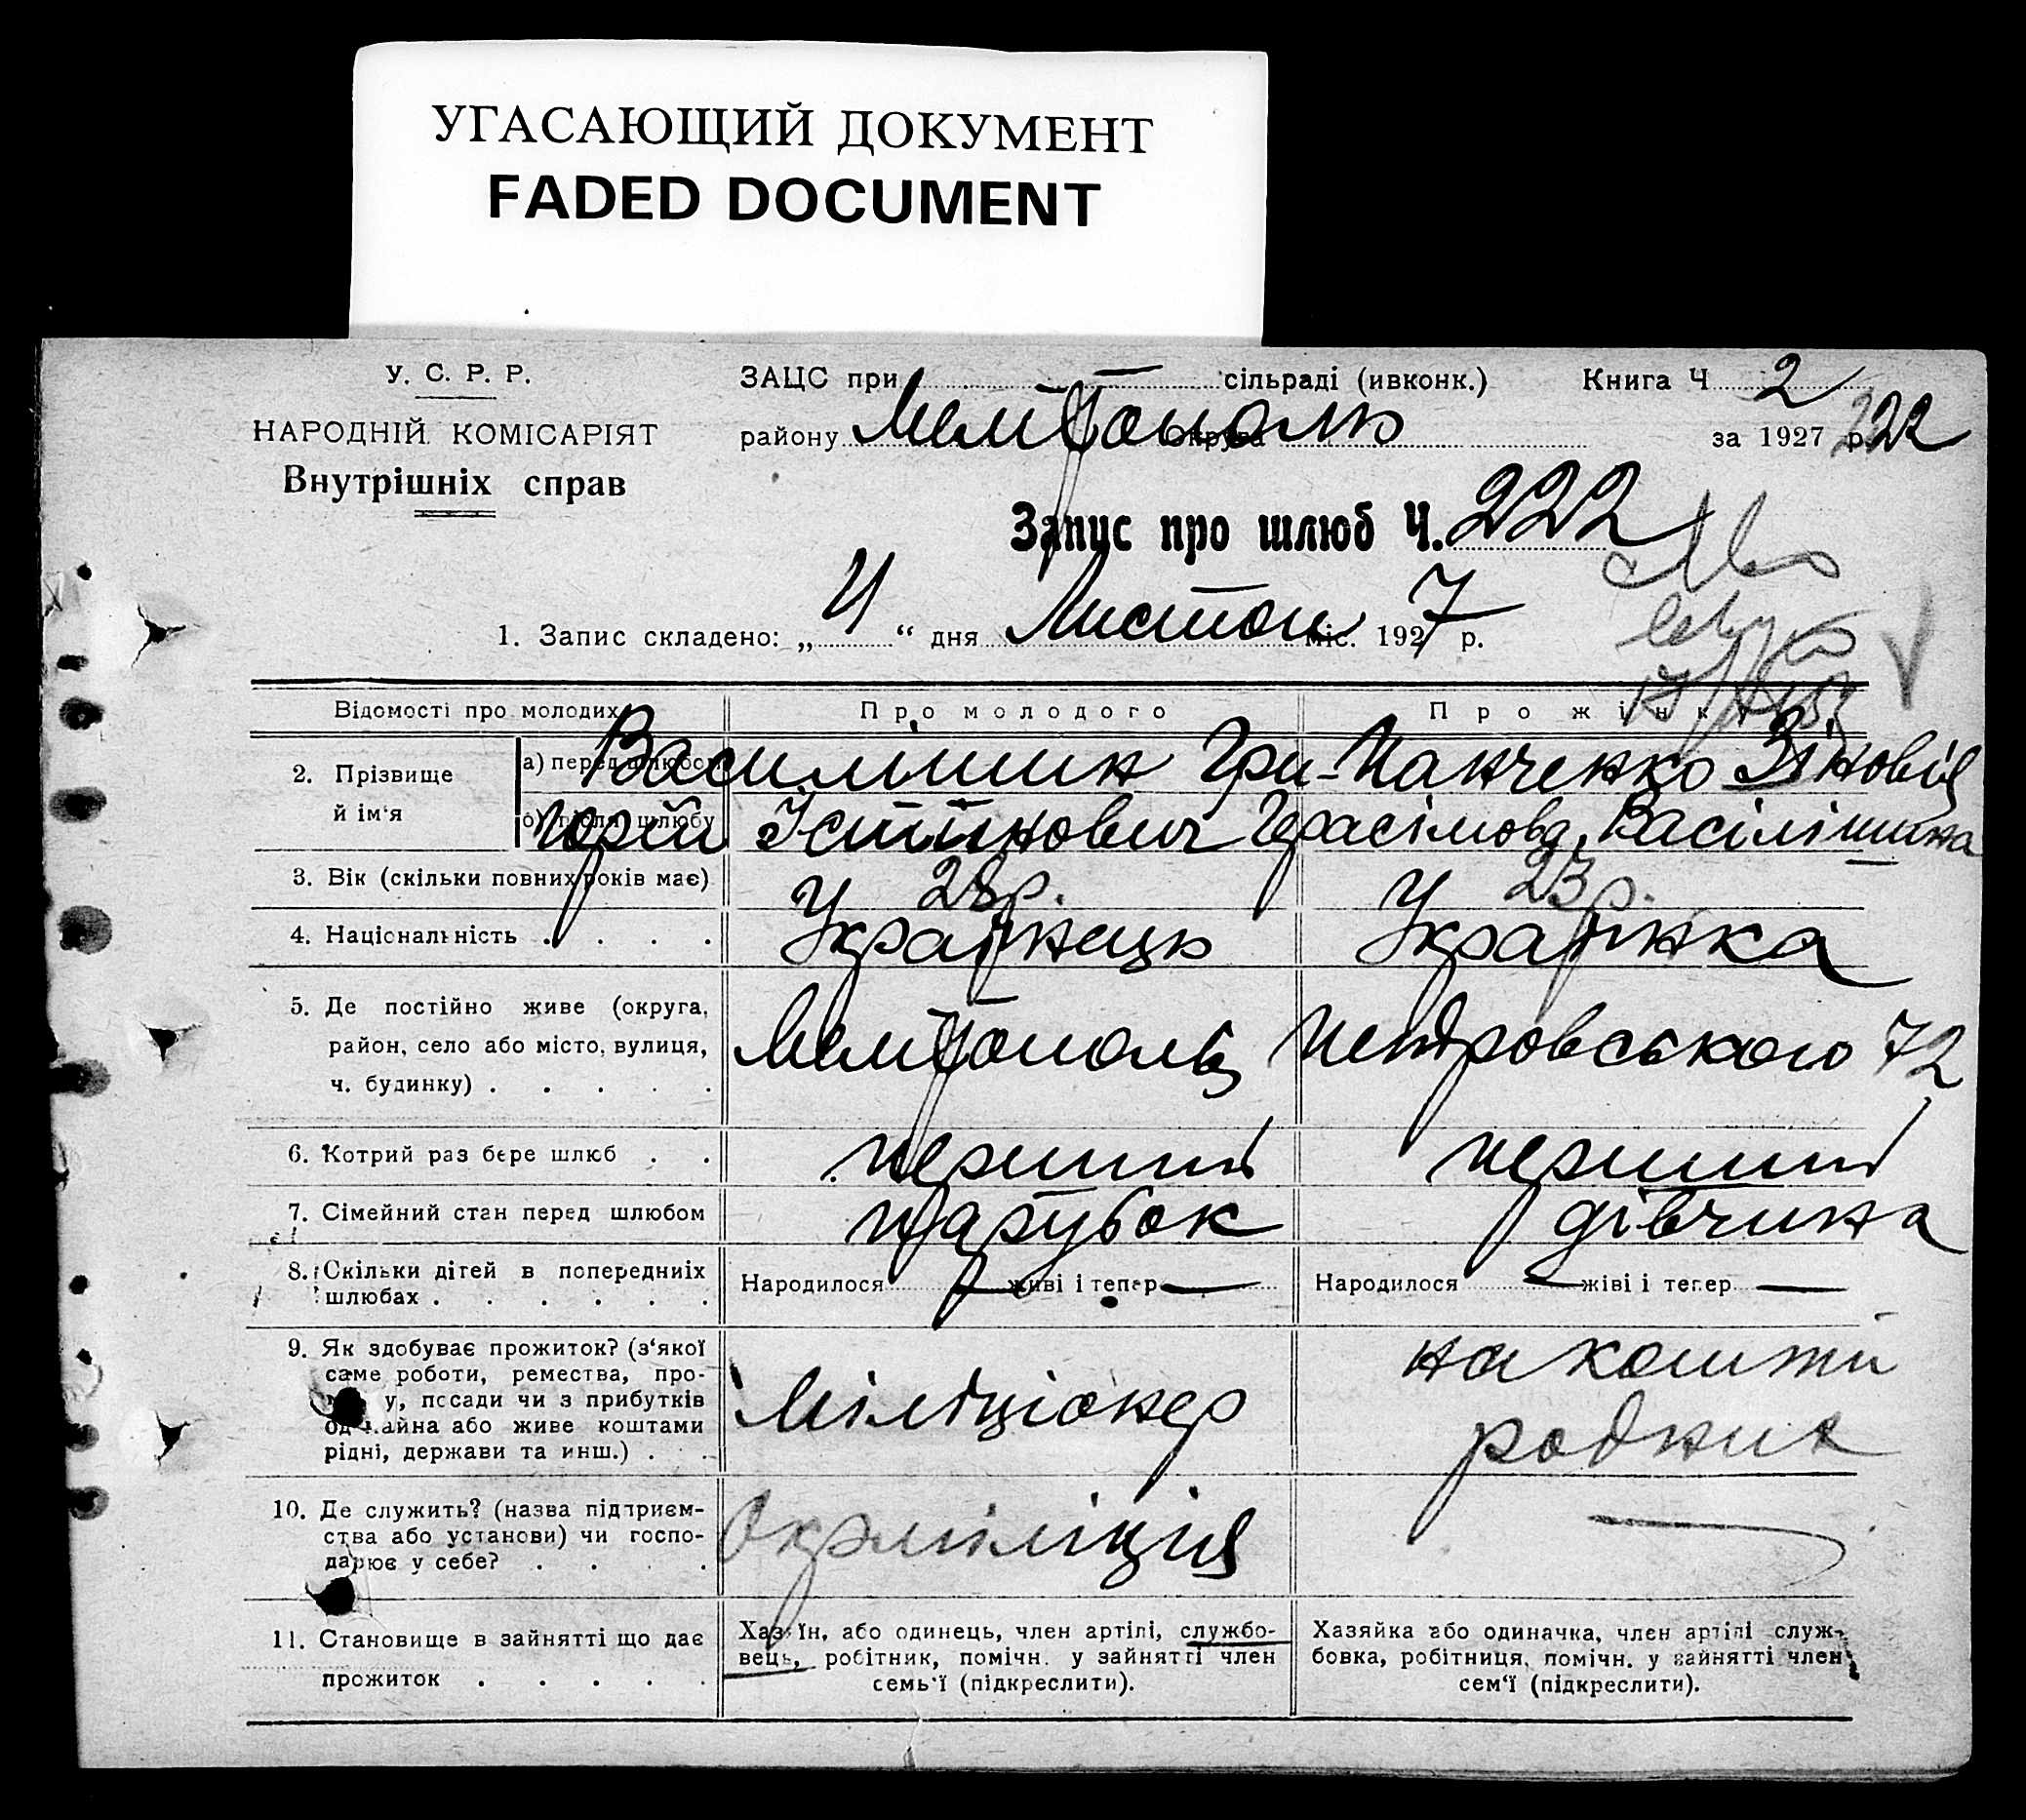 УГАСАЮЩИЙ ДОКУМЕНТ
FADED DOCUMENT
У. С. Р. Р.
НАРОДНІЙ КОМІСАРІЯТ
Внутрішніх справ
ЗАЦС при сільраді (ивконк.) Книга Ч 2
району Мелітополь округа за 1927 р. 222
Запис про шлюб Ч. 222
1. Запис складено: „ 4 “ дня Листоп міс. 1927 р.
Відомості про молодих Про молодого Про жінку
2. Прізвище й ім'я
а) перед шлюбом Василишин Гри- Панченко Зіновія
б) після шлюбу горій Устінович Герасімовa, Васілішина
3. Вік (скільки повних років має) 28 р. 23 р.
4. Національність . . . . Українець Українка
5. Де постійно живе (округа,
район, село або місто, вулиця, Мелітополь Петровського 72
ч. будинку) . . . . .
6. Котрий раз бере шлюб . . перший перший
7. Сімейний стан перед шлюбом парубок дівчина
8. Скільки дітей в попередниіх Народилося — живі і тепер — Народилося — жіві і тепер —
шлюбах . . . . . .
9. Як здобуває прожиток? (з'якої на кошти
саме роботи, ремества, про-
у, посади чи з прибутків Міліціонер
майна або живе коштами родних
рідні, держави та инш.) . .
10. Де служить? (назва підприєм-
ства або установи) чи госпо- Окрміліція —
дарює у себе? . . . .
11. Становище в зайнятті що дає Хазяїн, або одинець, член артілі, службо- Хазяйка або одиначка, член артілі служ-
вець, робітник, помічн. у зайнятті член бовка, робітниця, помічн. у зайнятті член
прожиток . . . . . семь'ї (підкреслити). сем'ї (підкреслити).